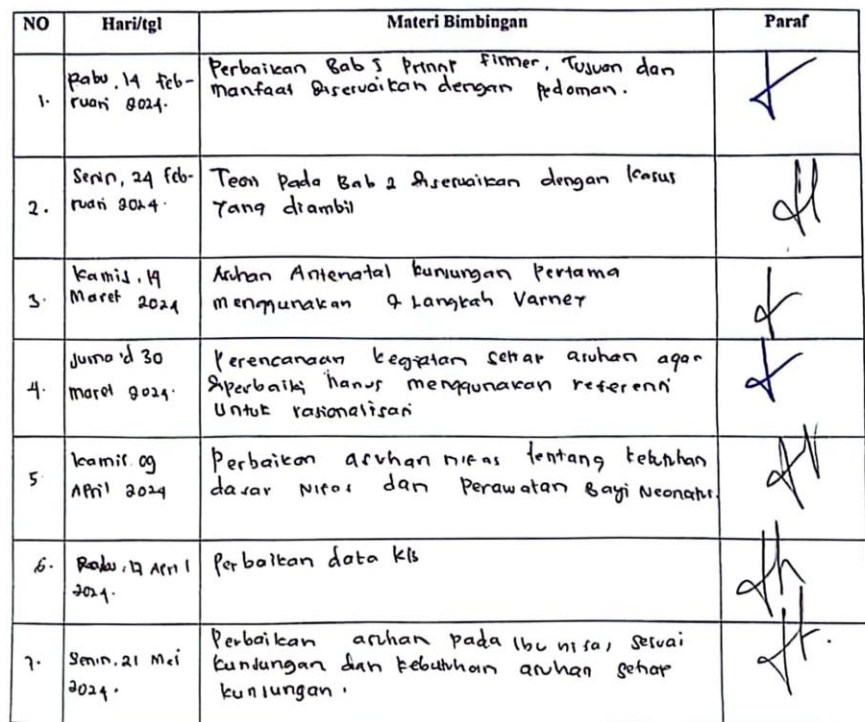 NO Hari/tgl Materi Bimbingan Paraf
1. Rabu, 14 Feb-
ruari 2024.
Perbaikan Bab I Tujuan dan
manfaat disesuaikan dengan pedoman.
2. Senin, 24 Feb-
ruari 2024.
Teori Pada Bab 2 disesuaikan dengan kasus
Yang diambil
3. Kamis, 
Maret 2024
Asuhan Antenatal kunjungan Pertama
menggunakan Langkah Varney
4. 30
maret 2024.
Perencanaan kegiatan setiap asuhan agar
diperbaiki harus menggunakan referensi
Untuk rasionalisasi
5 Kamis 09
April 2024
Perbaikan asuhan nifas tentang kebutuhan
dasar Nifas dan Perawatan Bayi Neonatus.
6. Rabu, 17 April
2024.
Perbaikan data
7. Senin, 21 Mei
2024.
Perbaikan asuhan pada Ibu nifas, sesuai
kunjungan dan kebutuhan asuhan setiap
kunjungan.